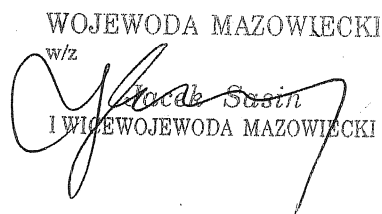 WOJEWODA MAZOWIECKI
w/z
Jacek Sasin
I WICEWOJEWODA MAZOWIECKI